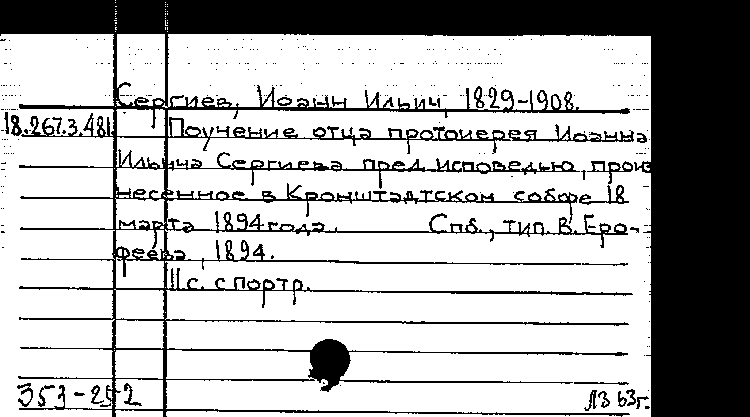 Сергиев, Иоанн Ильич, 1829-1908.
18.267.3.481 Поучение отца протоиерея Иоанна
Ильича Сергиева пред исповедью, произ
несенное в Кронштадтском соборе 18
марта 1894 года. Спб., тип. В. Еро-
феева, 1894.
11 с. с портр.
353-252 ЛЗ 63г.